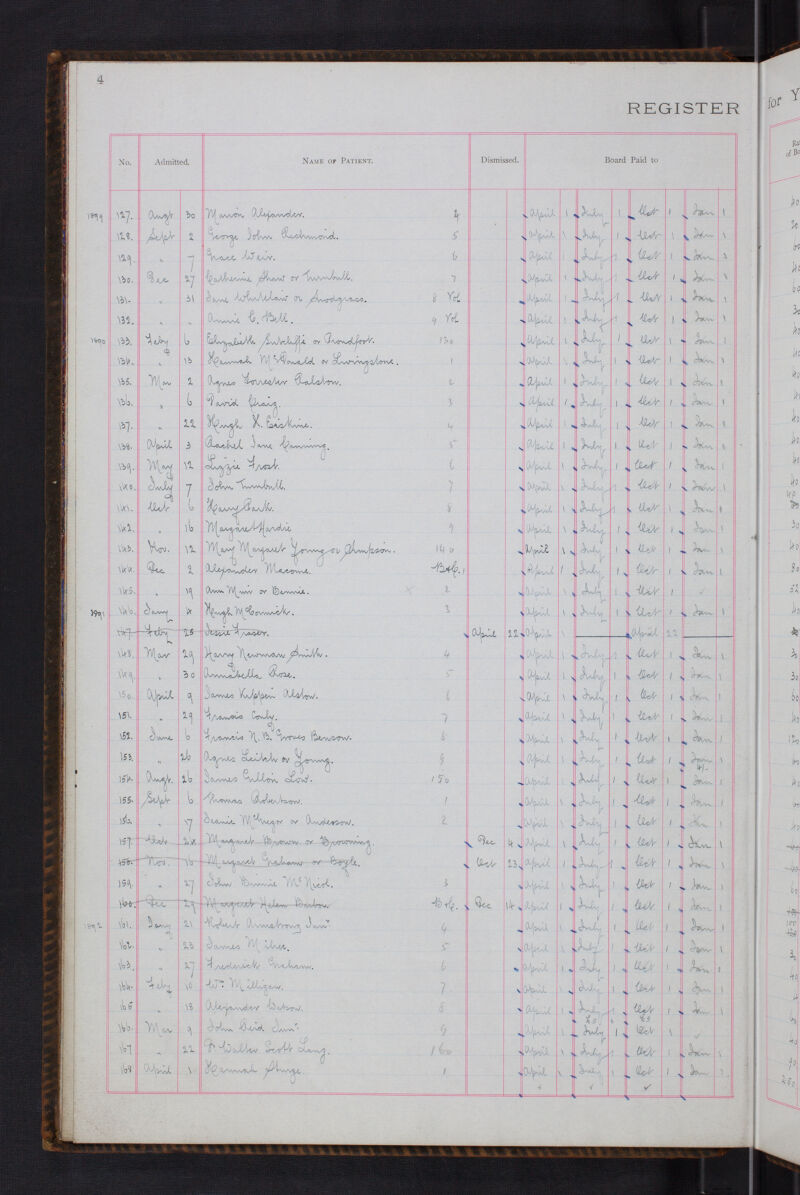 4
REGISTER
for Y
No. Admitted. Name of Patient. Dismissed. Board Paid to
1889 127. Augt 30 Marion Alexander. 4 April 1 July 1 Oct 1 Jan 1
128. Sept 2 George John Richmond. 5 April 1 July 1 Oct 1 Jan 1
129. " 7 Grace Weir. 6 April 1 July 1 Oct 1 Jan 1
130. Dec 27 Catherine Shaw or Turnbull. 7 April 1 July 1 Oct 1 Jan 1
131. " 31 Jane Whitelaw or Snodgrass. 8 Vol April 1 July 1 Oct 1 Jan 1
132. " " Annie C. Bell. 9 Vol April 1 July 1 Oct 1 Jan 1
1890 133. Feby 6 Elizabeth Sutcliffe or 130 April 1 July 1 Oct 1 Jan 1
134. " 13 Hannah McDonald or Livingstone. 1 April 1 July 1 Oct 1 Jan 1
135. Mar 2 Agnes Forrester Ralston. 2 April 1 July 1 Oct 1 Jan 1
136. " 6 David Craig. 3 April 1 July 1 Oct 1 Jan 1
137. " 22 Hugh K. Erskine. 4 April 1 July 1 Oct 1 Jan 1
138. April 3 Rachel Jane Canning. 5 April 1 July 1 Oct 1 Jan 1
139. May 12 Lizzie Frost. 6 April 1 July 1 Oct 1 Jan 1
140. July 7 John Turnbull. 7 April 1 July 1 Oct 1 Jan 1
141. Oct 6 Harry Park. 8 April 1 July 1 Oct 1 Jan 1
142. " 16 Margaret Hardie 9 April 1 July 1 Oct 1 Jan 1
143. Nov. 12 Mary Margaret Young or Simpson. 140 April 1 July 1 Oct 1 Jan 1
144. Dec 2 Alexander Macome. 1 April 1 July 1 Oct 1 Jan 1
145. " 19 Ann Muir or Rennie. 2 April 1 July 1 Oct 1
1891 146. Jany 4 Hugh McCormick. 3 April 1 July 1 Oct 1 Jan 1
147. Feby 25 Jessie Fraser. April 22 April 1 April 22
148. Mar 29 Harry Newman Smith. 4 April 1 July 1 Oct 1 Jan 1
149. " 30 Annabella Rose. 5 April 1 July 1 Oct 1 Jan 1
150. April 9 James Kippen Alston. 6 April 1 July 1 Oct 1 Jan 1
151. " 29 Francis Conly. 7 April 1 July 1 Oct 1 Jan 1
152. June 6 Francis N. B. Groves Benson. 8 April 1 July 1 Oct 1 Jan 1
153. " 26 Agnes Leitch or Young. 9 April 1 July 1 Oct 1 Jan 1
154. Augt. 26 James Gullon Low. 150 April 1 July 1 Oct 1 Jan 1
155. Sept 6 Thomas Robertson. 1 April 1 July 1 Oct 1 Jan 1
156. " 17 Jeanie McGregor or Anderson. 2 April 1 July 1 Oct 1 Jan 1
157. Oct 24 Margaret Brown or Browning. Dec 4 April 1 July 1 Oct 1 Jan 1
158. Nov. 16 Margaret Graham or Boyle. Oct 23 April 1 July 1 Oct 1 Jan 1
159. " 27 John Binnie McNicol. 3 April 1 July 1 Oct 1 Jan 1
160. Dec 29 Margaret Helen Dec 14 April 1 July 1 Oct 1 Jan 1
1892 161. Jany 21 Robert Armstrong Junr 4 April 1 July 1 Oct 1 Jan 1
162. " 23 James Milne. 5 April 1 July 1 Oct 1 Jan 1
163. " 27 Frederick Graham. 6 April 1 July 1 Oct 1 Jan 1
164. Feby 10 Wm Milligan. 7 April 1 July 1 Oct 1 Jan 1
165 " 13 Alexander Watson. 8 April 1 July 1 Oct 1 Jan 1
166. Mar 9 John Reid Junr 9 April 1 July 1 Oct 1
167 " 22 Dr Walter Scott Lang. 160 April 1 July 1 Oct 1 Jan 1
168 April 1 Hannah Sturge. 1 April 1 July 1 Oct 1 Jan 1